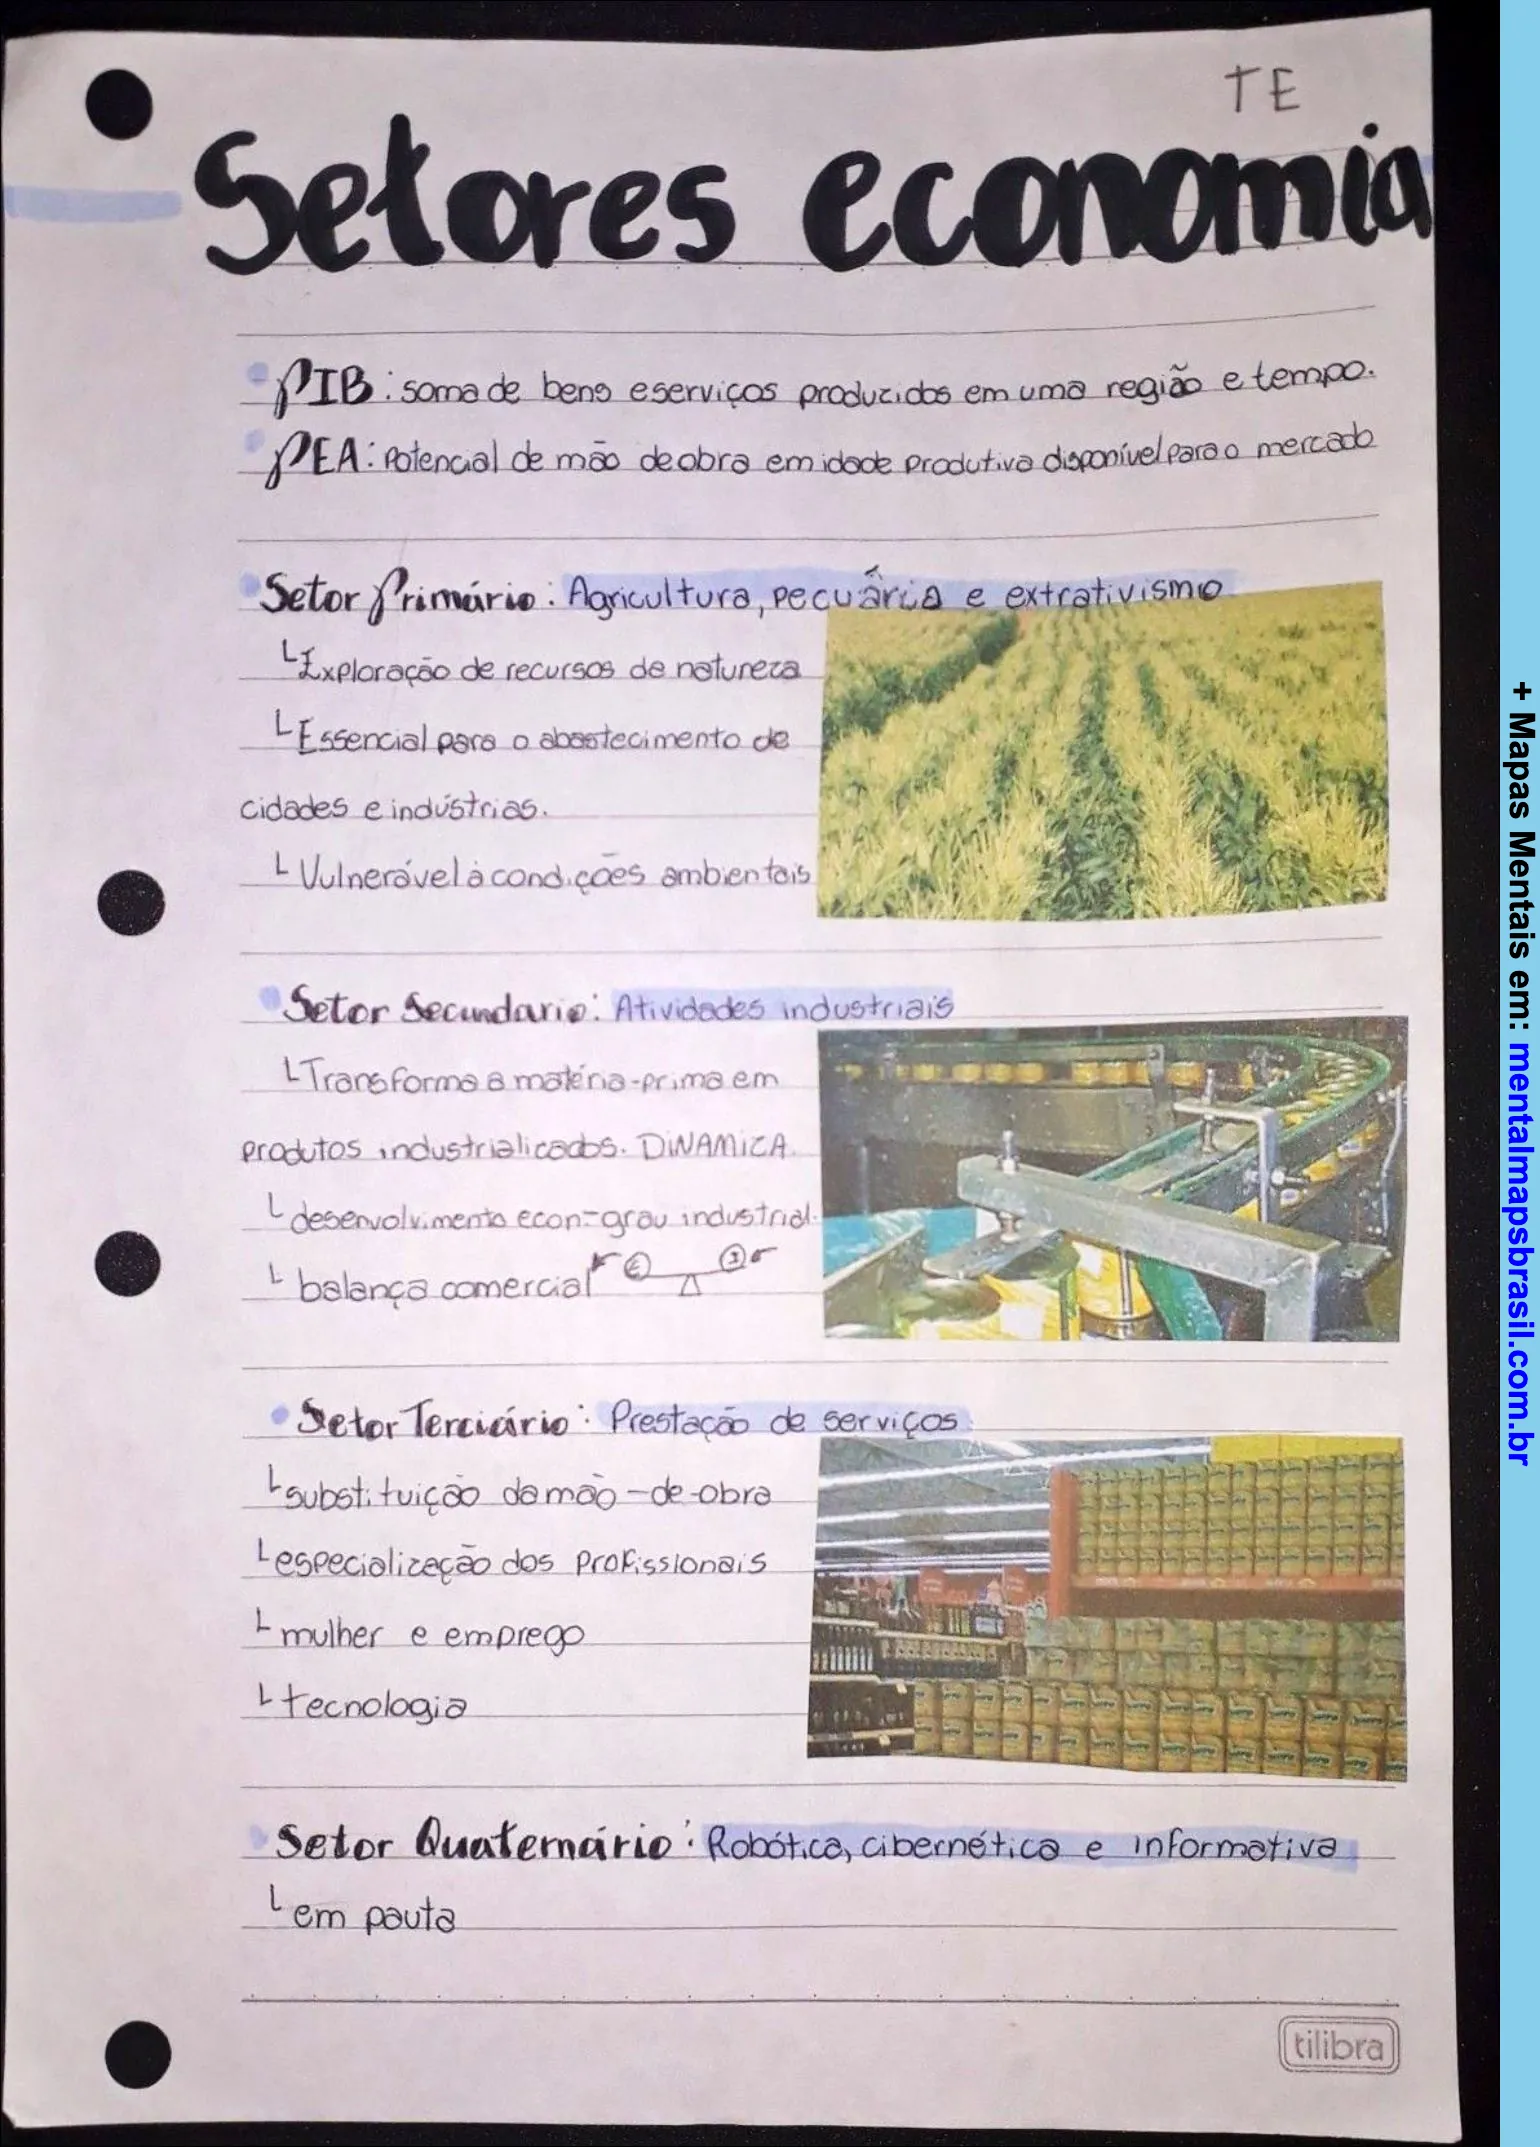 TE
Setores economia
PIB: soma de bens e serviços produzidos em uma região e tempo.
PEA: Potencial de mão de obra em idade produtiva disponível para o mercado
Setor Primário: Agricultura, pecuária e extrativismo
└ Exploração de recursos de natureza
└ Essencial para o abastecimento de
cidades e indústrias.
└ Vulnerável à condições ambientais
Setor Secundario: Atividades industriais
└ Transforma a matéria-prima em
produtos industrializados. DiNAMiCA.
└ desenvolvimento econ-grau industrial.
└ balança comercial
└ Setor Terciário: Prestação de serviços
└ substituição da mão-de-obra
└ especialização dos profissionais
└ mulher e emprego
└ tecnologia
Setor Quaternário: Robótica, cibernética e informativa
└ em pauta
tilibra
+ Mapas Mentais em: mentalmapsbrasil.com.br